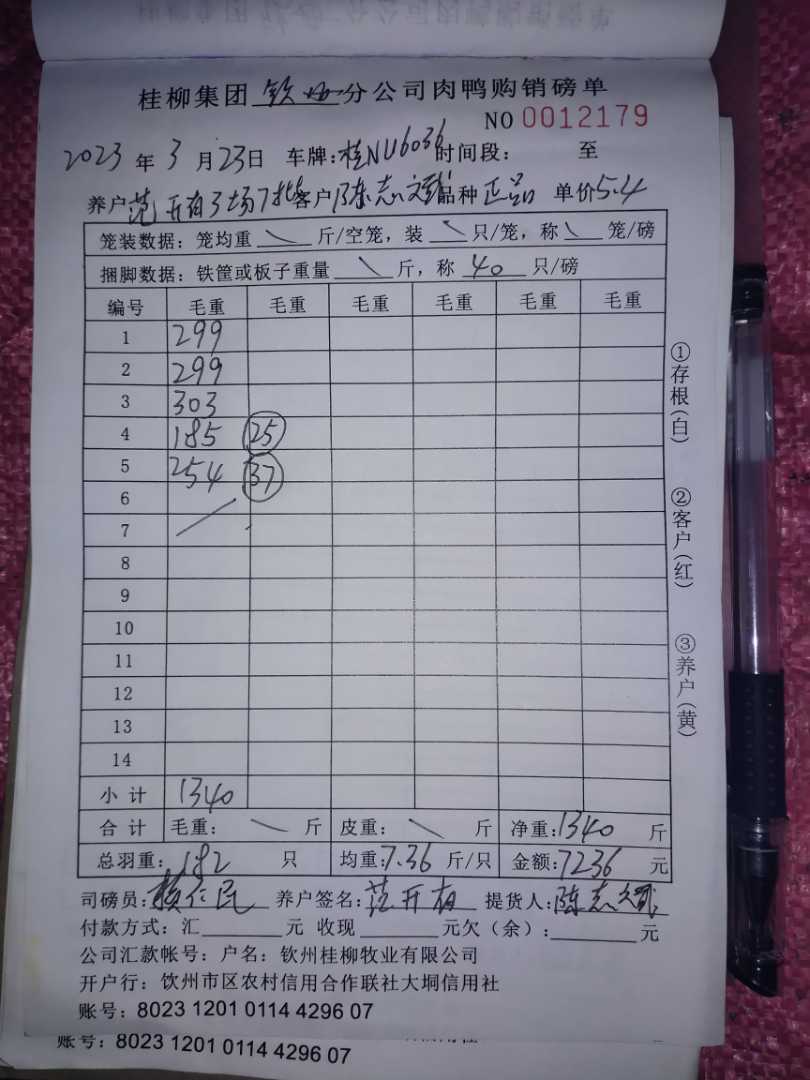 桂柳集团 钦州 分公司肉鸭购销磅单
NO 0012179
2023 年 3 月 23 日 车牌:桂NU6036 时间段: 至
养户 范开有3场7批 客户 陈志斌 品种 正品 单价 5.4
笼装数据: 笼均重 斤/空笼, 装 只/笼, 称 笼/磅
捆脚数据: 铁筐或板子重量 斤, 称 40 只/磅
编号 毛重 毛重 毛重 毛重 毛重 毛重
1 299
2 299
3 303
4 185 25
5 254 37
6
7
8
9
10
11
12
13
14
小计 1340
合计 毛重: 斤 皮重: 斤 净重: 1340 斤
总羽重: 182 只 均重: 7.36 斤/只 金额: 7236 元
司磅员: 赖仁民 养户签名: 范开有 提货人: 陈志斌
付款方式: 汇 元 收现 元欠(余): 元
公司汇款帐号: 户名: 钦州桂柳牧业有限公司
开户行: 饮州市区农村信用合作联社大垌信用社
账号: 8023 1201 0114 4296 07
账号: 8023 1201 0114 4296 07
①存根(白)
②客户(红)
③养户(黄)